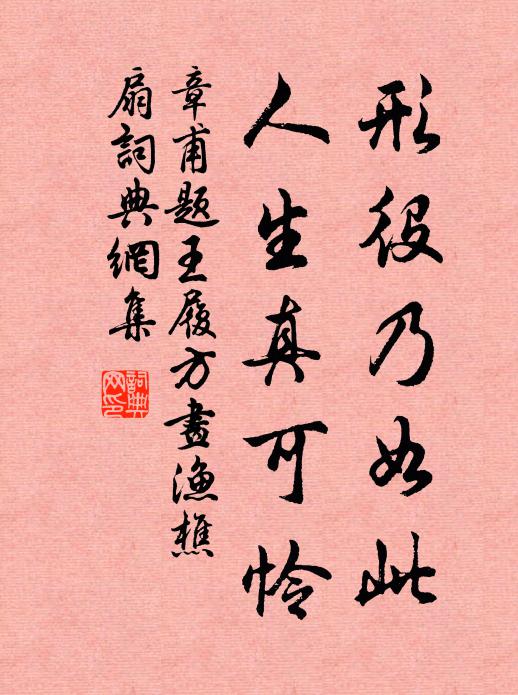 形役乃如此
人生真可怜
章甫题王履方画渔樵
扇詞典網集
詞典
网印